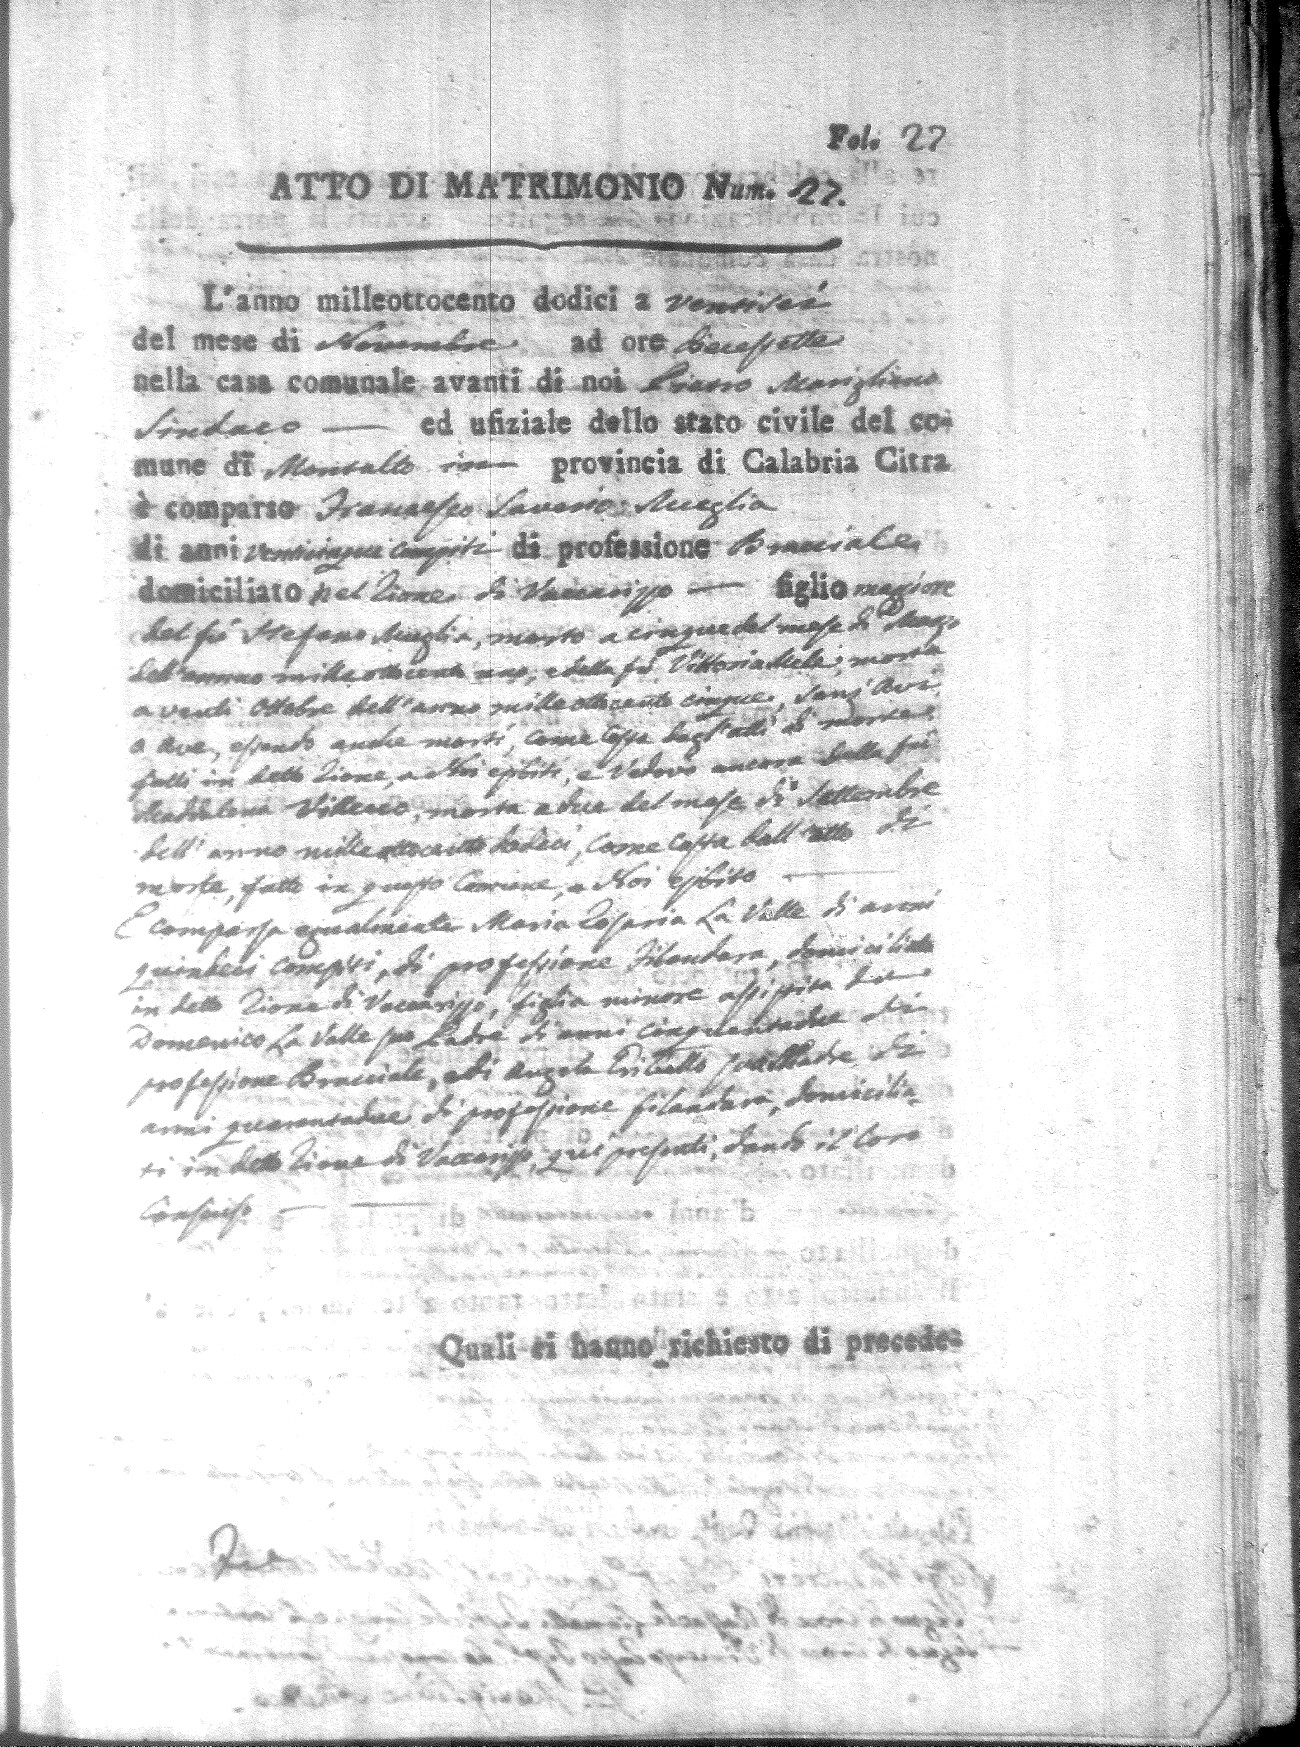 Fol. 27
ATTO DI MATRIMONIO Num. 27.
L'anno milleottocento dodici a ventisei
del mese di Novembre ad ore diecessette
nella casa comunale avanti di noi Marigliano
Sindaco — ed ufiziale dello stato civile del co-
mune di Montalto in — provincia di Calabria Citra
è comparso Francesco Saverio Muglia
di anni venticinque compiti di professione Bracciale
domiciliato nel Rione di Vaccarizzo — figlio maggiore
del fu Stefano Muglia, morto a cinque del mese di Marzo
dell'anno mille ottocento uno, e della fu Vittoria Mele, morta
a venti Ottobre dell'anno mille ottocento cinque, senz'Avi
o Ave, essendo anche morti, come costa dagl'atti di morte
fatti in detto Rione, a Noi esibiti, e Vedovo ancora della fu
Maddalena, morta a due del mese di Settembre
dell'anno mille ottocento dodici, come costa dall'atto di
morte, fatto in questo Comune, a Noi esibito —
E comparsa egualmente Maria Rosaria La Valle di anni
quindeci compiti, di professione Filandara, domiciliata
in detto Rione di Vaccarizzo, figlia minore assistita da
Domenico La Valle suo Padre di anni cinquantadue di
professione Bracciale, e di Angela sua Madre di
anni quarantadue di professione filandara, domicilia-
ti in detto Rione di Vaccarizzo, qui presenti, dando il loro
Consenso — —
Quali ci hanno richiesto di precede-